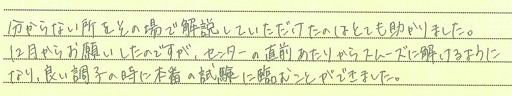 分からない所をその場で解説していただけたのはとても助かりました。
12月からお願いしたのですが、センターの直前あたりからスムーズに解けるように
なり、良い調子の時に本番の試験に臨むことができました。